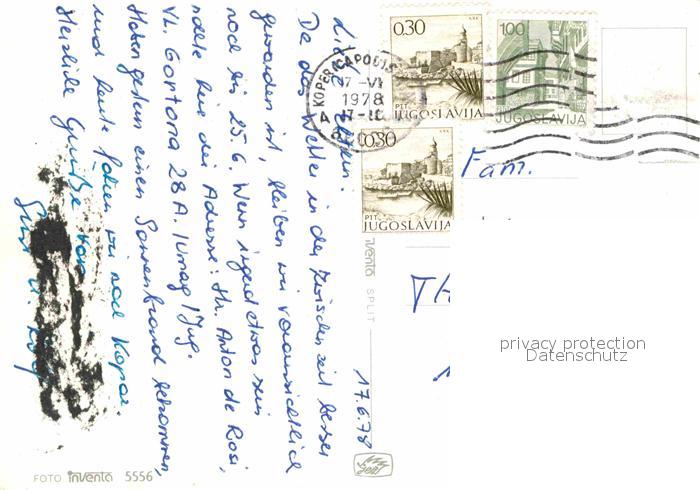 Da das Wetter in der Zwischenzeit besser
geworden ist, bleiben wir voraussichtlich
noch bis 25.6. Wenn irgend etwas sein
sollte hier die Adresse: Hr. Anton de Rosi,
Vl. Gortona 28A. Umag / Jug.
Haben gestern einen Sonnenbrand bekommen,
und heute fahren wir nach Koper.
Herzliche Grüße von
17.6.78
0.30
PTT
JUGOSLAVIJA
1.00
JUGOSLAVIJA
KOPER CAPODIS
17-VI
1978
A
0.30
PTT
JUGOSLAVIJA
Fam.
privacy protection
Datenschutz
inventa SPLIT
FOTO inventa 5556